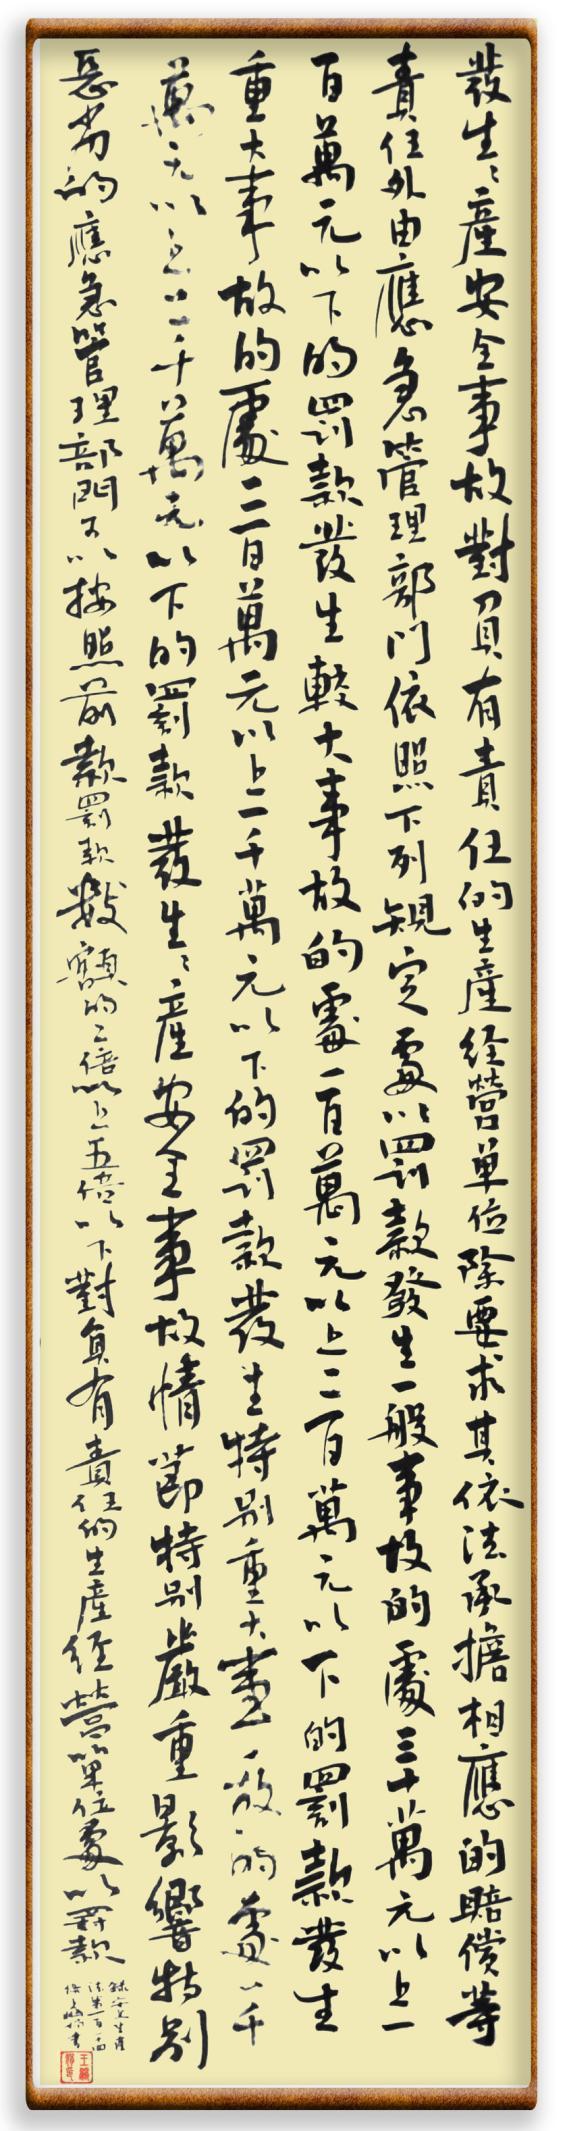 發生生產安全事故對負有責任的生產經營單位除要求其依法承擔相應的賠償等
責任外由應急管理部門依照下列規定處以罰款發生一般事故的處三十萬元以上一
百萬元以下的罰款發生較大事故的處一百萬元以上二百萬元以下的罰款發生
重大事故的處二百萬元以上一千萬元以下的罰款發生特別重大事故的處一千
萬元以上二千萬元以下的罰款發生生產安全事故情節特別嚴重影響特別
惡劣的應急管理部門可以按照前款罰款數額的二倍以上五倍以下對負有責任的生產經營單位處以罰款
錄安全生產
法第一百一四